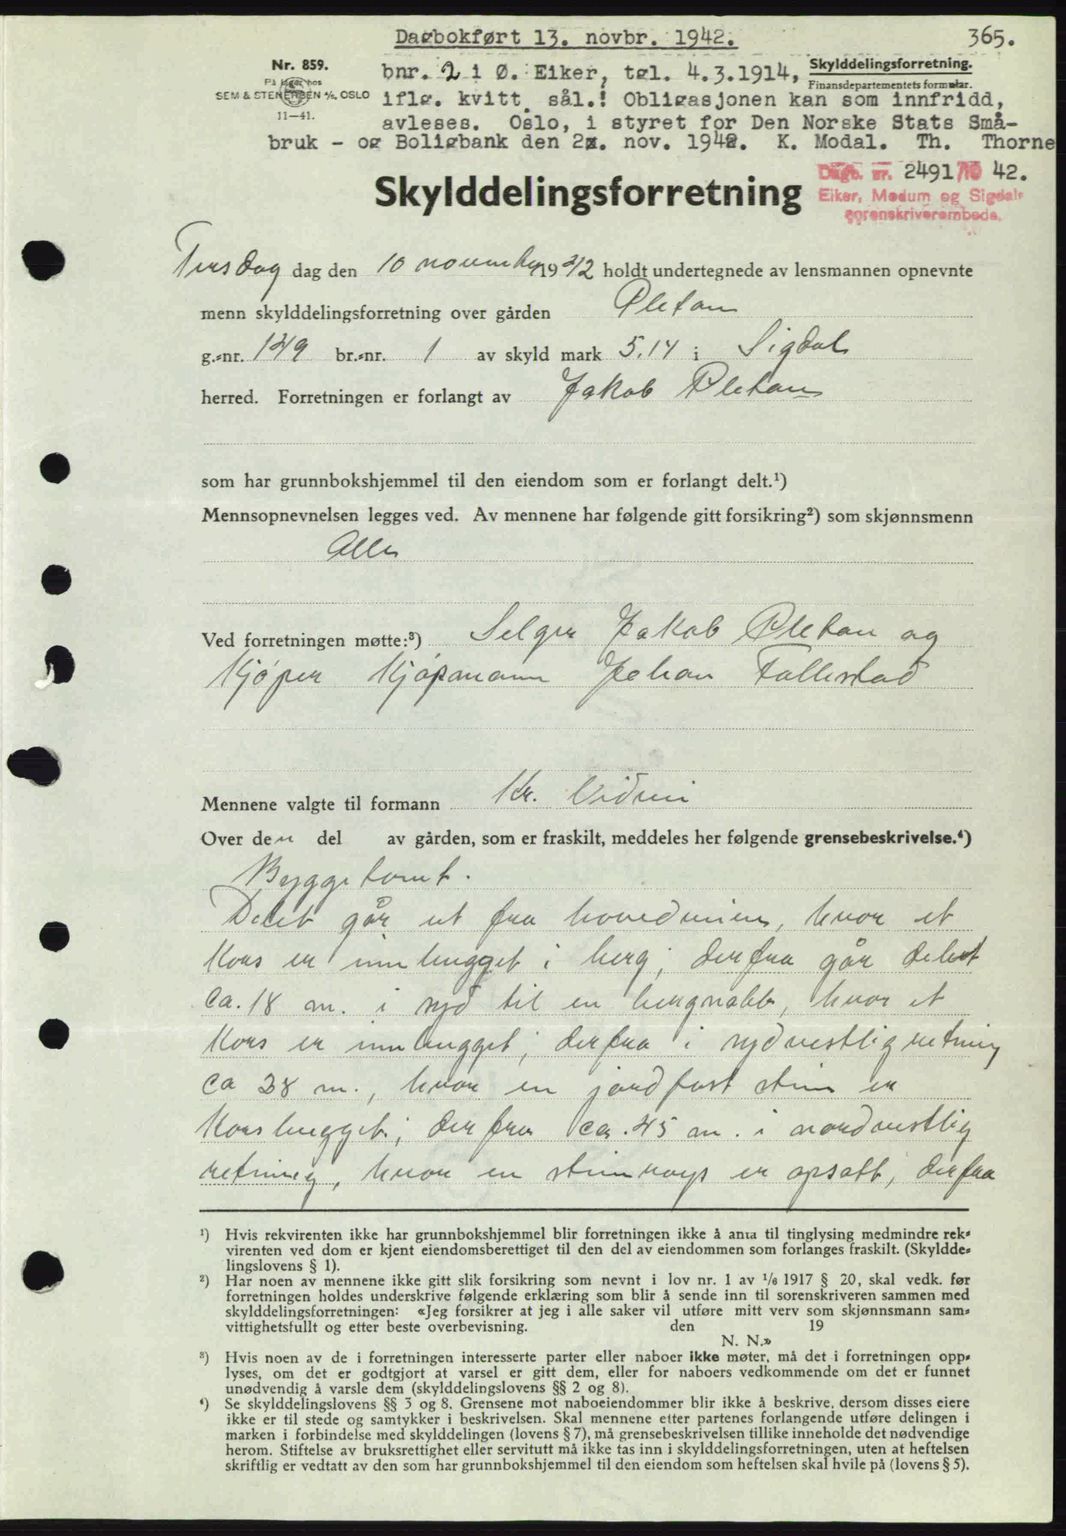 Dagbokført 13. novbr. 1942.
365.
Nr. 859.
På lager hos
SEM & STENERSEN A/S, OSLO
11—41.
Skylddelingsforretning.
Finansdepartementets formular.
bnr. 2 i Ø. Eiker, tgl. 4.3.1914,
iflg. kvitt. sål.: Obligasjonen kan som innfridd,
avleses. Oslo, i styret for Den Norske Stats Små-
bruk - og Boligbank den 2. nov. 1942. K. Modal. Th. Thorne
Dagb. nr. 2491/19 42.
Eiker, Modum og Sigdal
sorenskriverembede.
Skylddelingsforretning
Tirsdag dag den 10 november 1942 holdt undertegnede av lensmannen opnevnte
menn skylddelingsforretning over gården Pletan
g.-nr. 149 br.-nr. 1 av skyld mark 5.14 i Sigdal
herred. Forretningen er forlangt av Jakob Pletan
som har grunnbokshjemmel til den eiendom som er forlangt delt.¹)
Mennsopnevnelsen legges ved. Av mennene har følgende gitt forsikring²) som skjønnsmenn
Alle
Ved forretningen møtte:³) Selger Jakob Pletan og
Kjøper Kjøpmann Johan Tallestad
Mennene valgte til formann Kr.
Over den del av gården, som er fraskilt, meddeles her følgende grensebeskrivelse.⁴)
Byggetomt.
Delet går ut fra hovedveien, hvor et
kors er innhugget i berg; derfra går delet
ca. 18 m. i syd til en bergnabb, hvor et
kors er innhugget; derfra i sydvestlig retning
ca 38 m., hvor en jordfast stein er
korshugget; derfra ca. 45 m. i nordvestlig
retning, hvor en steinrøys er opsatt, derfra
¹) Hvis rekvirenten ikke har grunnbokshjemmel blir forretningen ikke å anta til tinglysing medmindre rek-
virenten ved dom er kjent eiendomsberettiget til den del av eiendommen som forlanges fraskilt. (Skyldde-
lingslovens § 1).
²) Har noen av mennene ikke gitt slik forsikring som nevnt i lov nr. 1 av 1/6 1917 § 20, skal vedk. før
forretningen holdes underskrive følgende erklæring som blir å sende inn til sorenskriveren sammen med
skylddelingsforretningen: «Jeg forsikrer at jeg i alle saker vil utføre mitt verv som skjønnsmann sam-
vittighetsfullt og etter beste overbevisning. den 19
N. N.»
³) Hvis noen av de i forretningen interesserte parter eller naboer ikke møter, må det i forretningen opp-
lyses, om det er godtgjort at varsel er gitt dem, eller for naboers vedkommende om det er funnet
unødvendig å varsle dem (skylddelingslovens §§ 2 og 8).
⁴) Se skylddelingslovens §§ 3 og 8. Grensene mot naboeiendommer blir ikke å beskrive, dersom disses eiere
ikke er til stede og samtykker i beskrivelsen. Skal mennene etter partenes forlangende utføre delingen i
marken i forbindelse med skylddelingen (lovens § 7), må grensebeskrivelsen tillike inneholde det nødvendige
herom. Stiftelse av bruksrettighet eller servitutt må ikke tas inn i skylddelingsforretningen, uten at heftelsen
skriftlig er vedtatt av den som har grunnbokshjemmel til den eiendom som heftelsen skal hvile på (lovens § 5).